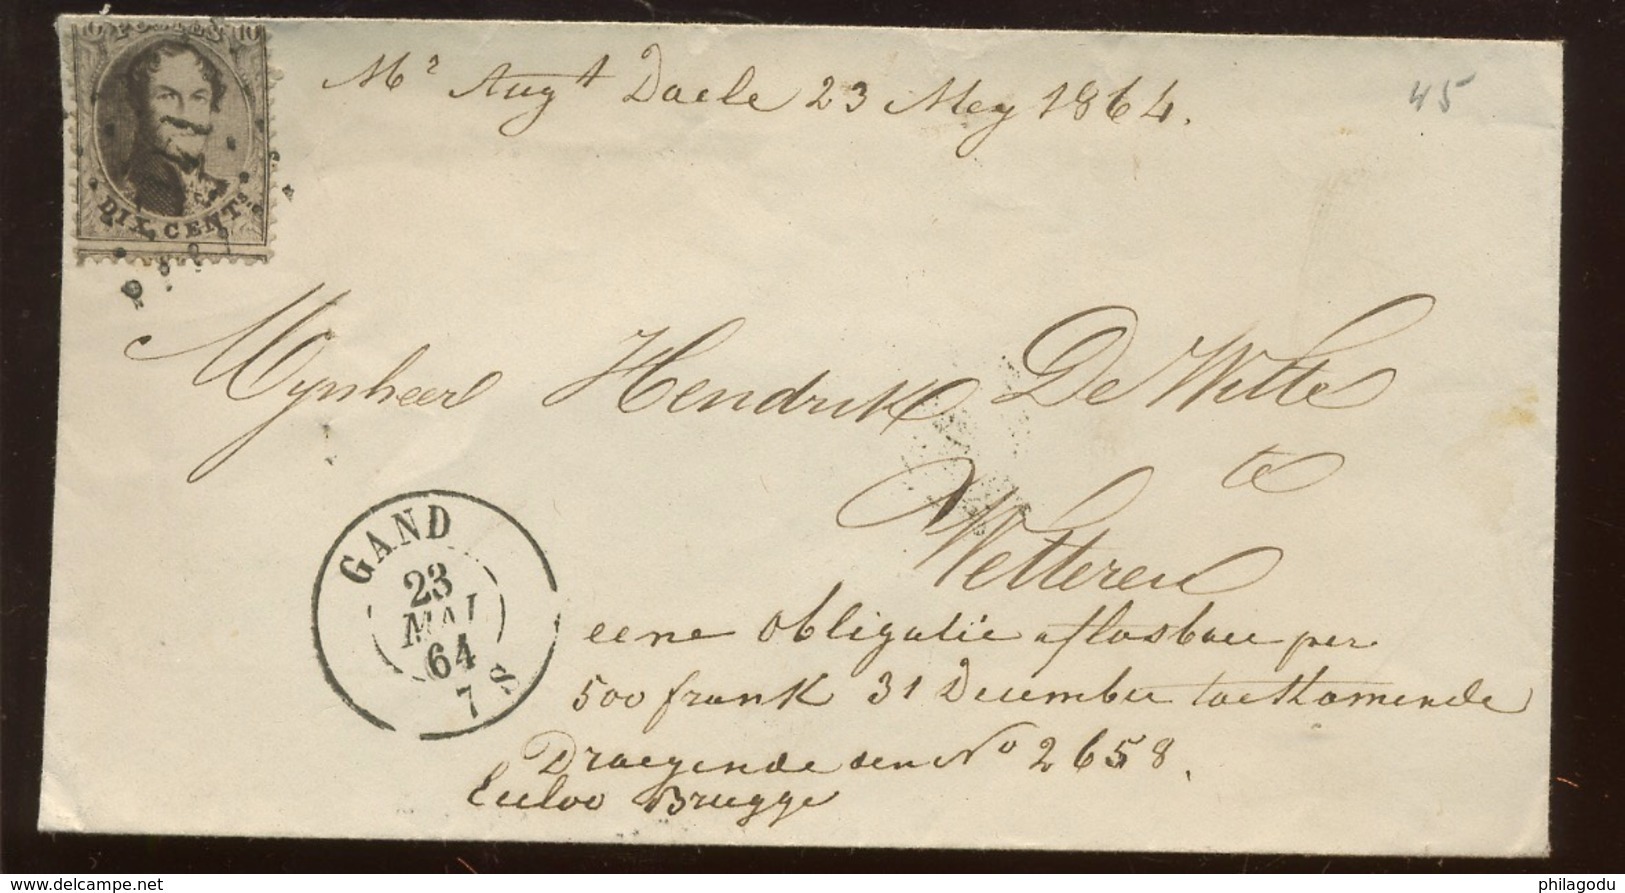 10 POSTES 10
DIX CENTS
Mr Augt Daele 23 Mey 1864.
45
Mynheer Hendrik De Witte
te
Wetteren
GAND
23
MAI
64
7 S
eene obligatie aflosbaer per
500 frank 31 December toekomende
Draegende den No 2658.
Eecloo Brugge
delcampe.net
philagodu